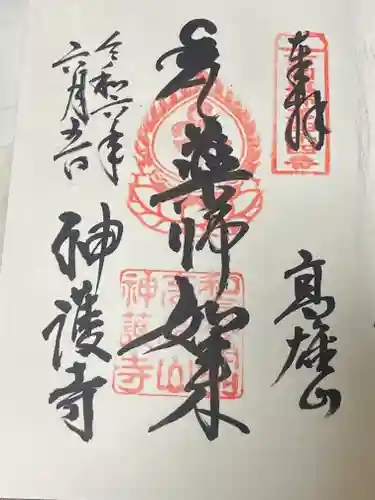 奉拝
高雄山
薬師如来
令和六年
六月吉日
神護寺
神護寺